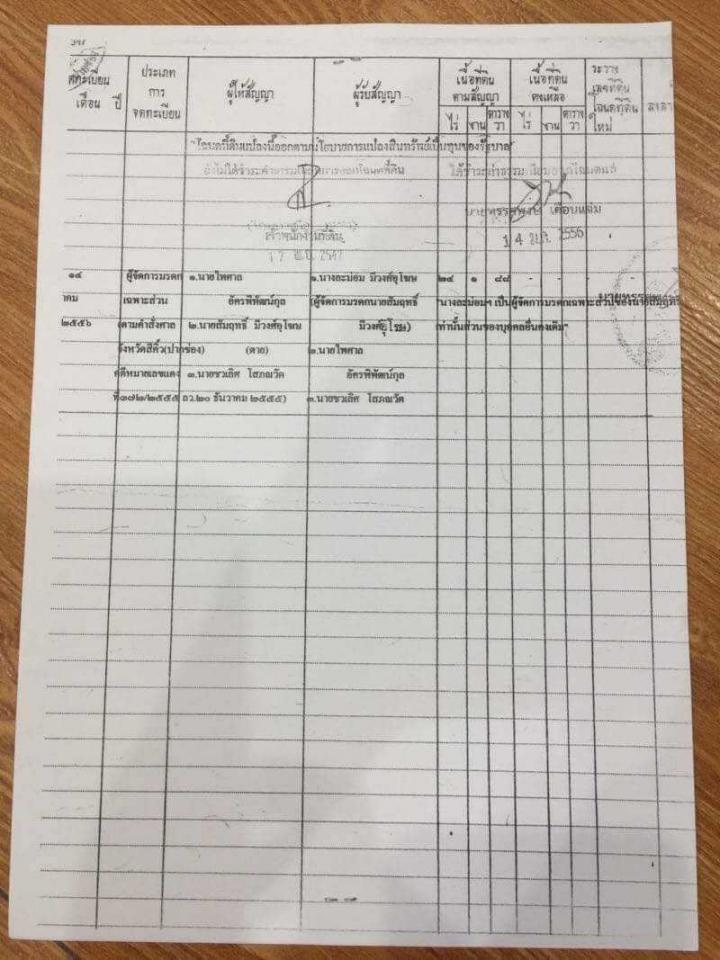 จดทะเบียน
เดือน ปี
ประเภท
การ
จดทะเบียน
ผู้ให้สัญญา
ผู้รับสัญญา
เนื้อที่ดิน
ตามสัญญา
ไร่ งาน ตาราง
วา
เนื้อที่ดิน
คงเหลือ
ไร่ งาน ตาราง
วา
ระวาง
เลขที่ดิน
โฉนดที่ดิน
ใหม่
"โฉนดที่ดินแปลงนี้ออกตามนโยบายการแปลงสินทรัพย์เป็นทุนของรัฐบาล"
ยังไม่ได้ชำระค่าธรรมเนียมการออกโฉนดที่ดิน
เจ้าพนักงานที่ดิน
14 มี.ค. 2556
๑๔ ผู้จัดการมรดก ๑.นายไพศาล ๑.นางละม่อม มีวงศ์อุโฆษ ๒๔ ๑ ๘๘ - - - -
คม เฉพาะส่วน อัครพิพัฒน์กุล (ผู้จัดการมรดกนายสัมฤทธิ์ "นางละม่อมฯ เป็นผู้จัดการมรดกเฉพาะส่วนของนายสัมฤทธิ์
๒๕๕๖ (ตามคำสั่งศาล ๒.นายสัมฤทธิ์ มีวงศ์อุโฆษ มีวงศ์อุโฆษ) เท่านั้นส่วนของบุคคลอื่นคงเดิม"
จังหวัดสีคิ้ว(ปากช่อง) (ตาย) ๒.นายไพศาล
คดีหมายเลขแดง ๓.นายชวเลิศ โสภณวัต อัครพิพัฒน์กุล
ที่๓๗๒/๒๕๕๕ ลว.๒๐ ธันวาคม ๒๕๕๕) ๓.นายชวเลิศ โสภณวัต